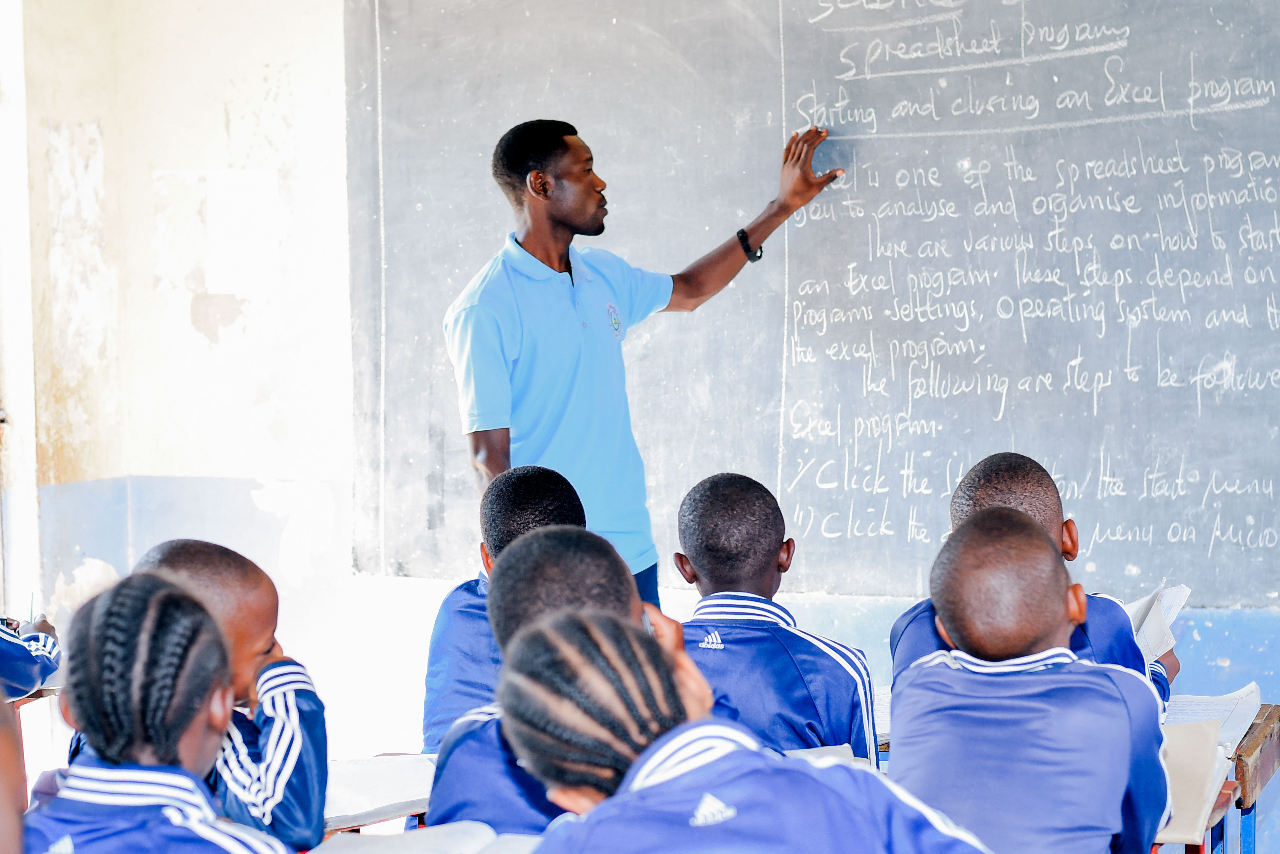 Science
Spreadsheet programs
Starting and closing an Excel program
is one of the spreadsheet program
you to analyse and organise informatio
There are various steps on how to start
an Excel program. These steps depend on
Programs settings, Operating system and
the excel program.
The following are steps to be followe
Excel program.
i) Click the on/ the start menu
ii) Click the menu on Micro
adidas